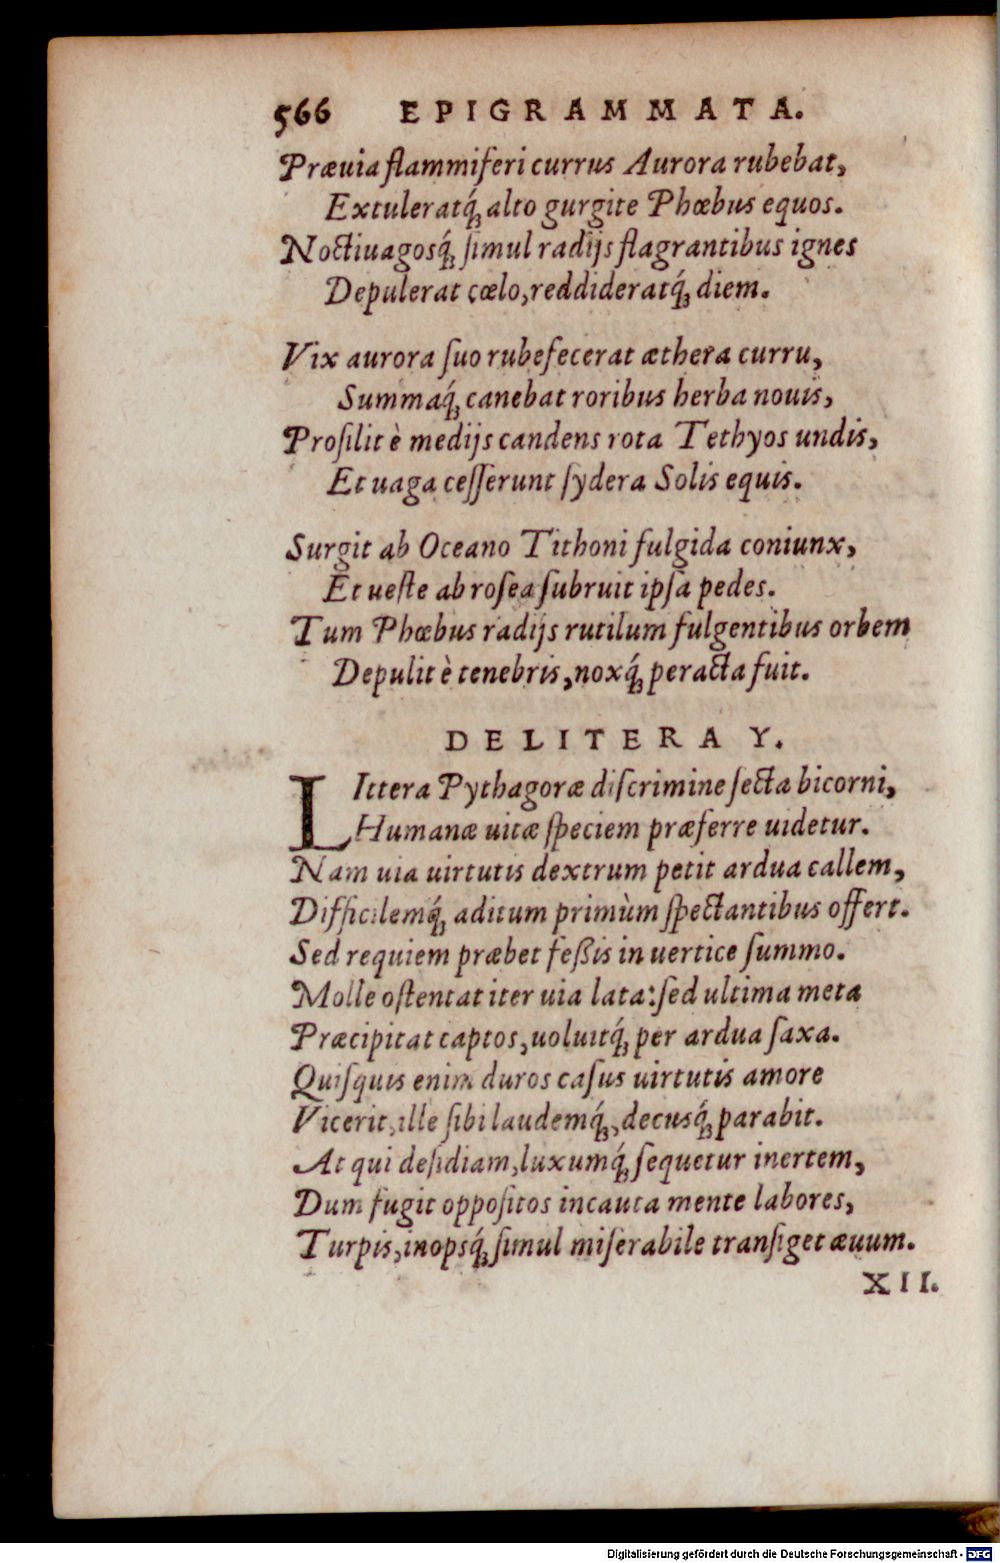 566 EPIGRAMMATA.
Præuia flammiferi currus Aurora rubebat,
Extuleratq́; alto gurgite Phœbus equos.
Noctiuagosq́; ſimul radijs flagrantibus ignes
Depulerat cœlo, reddideratq́; diem.
Vix aurora ſuo rubefecerat æthera curru,
Summaq́; canebat roribus herba nouis,
Proſilit è medijs candens rota Tethyos undis,
Et uaga ceſſerunt ſydera Solis equis.
Surgit ab Oceano Tithoni fulgida coniunx,
Et ueſte ab roſea ſubruit ipſa pedes.
Tum Phœbus radijs rutilum fulgentibus orbem
Depulit è tenebris, noxq́; peracta fuit.
DE LITERA Y.
LIttera Pythagoræ diſcrimine ſecta bicorni,
Humanæ uitæ ſpeciem præferre uidetur.
Nam uia uirtutis dextrum petit ardua callem,
Difficilemq́; aditum primùm ſpectantibus offert.
Sed requiem præbet feßis in uertice ſummo.
Molle oſtentat iter uia lata: ſed ultima meta
Præcipitat captos, uoluitq́; per ardua ſaxa.
Quiſquis enim duros caſus uirtutis amore
Vicerit, ille ſibi laudemq́;, decusq́; parabit.
At qui deſidiam, luxumq́; ſequetur inertem,
Dum fugit oppoſitos incauta mente labores,
Turpis, inopsq́; ſimul miſerabile tranſiget æuum.
XII.
Digitalisierung gefördert durch die Deutsche Forschungsgemeinschaft - DFG